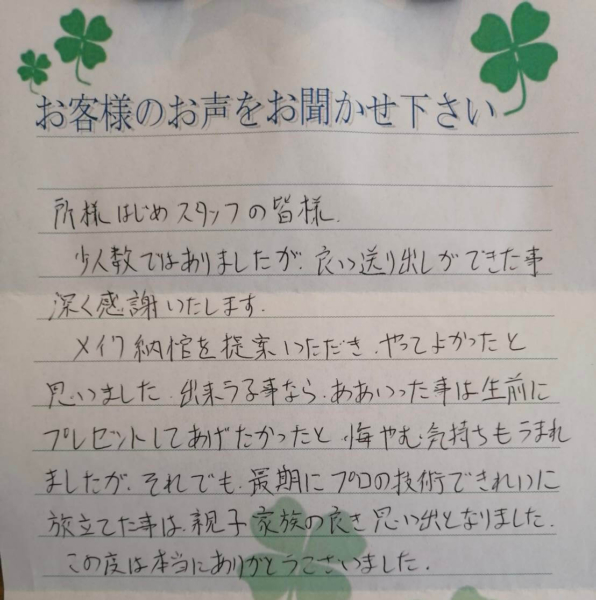 お客様のお声をお聞かせ下さい
所様はじめスタッフの皆様.
少人数ではありましたが、良い送り出しができた事
深く感謝いたします.
メイク納棺を提案いただき、やってよかったと
思いました.出来うる事なら、ああいった事は生前に
プレゼントしてあげたかったと 悔やむ気持ちもうまれ
ましたが、それでも、最期にプロの技術できれいに
旅立てた事は、親子家族の良き思い出となりました.
この度は本当にありがとうございました.